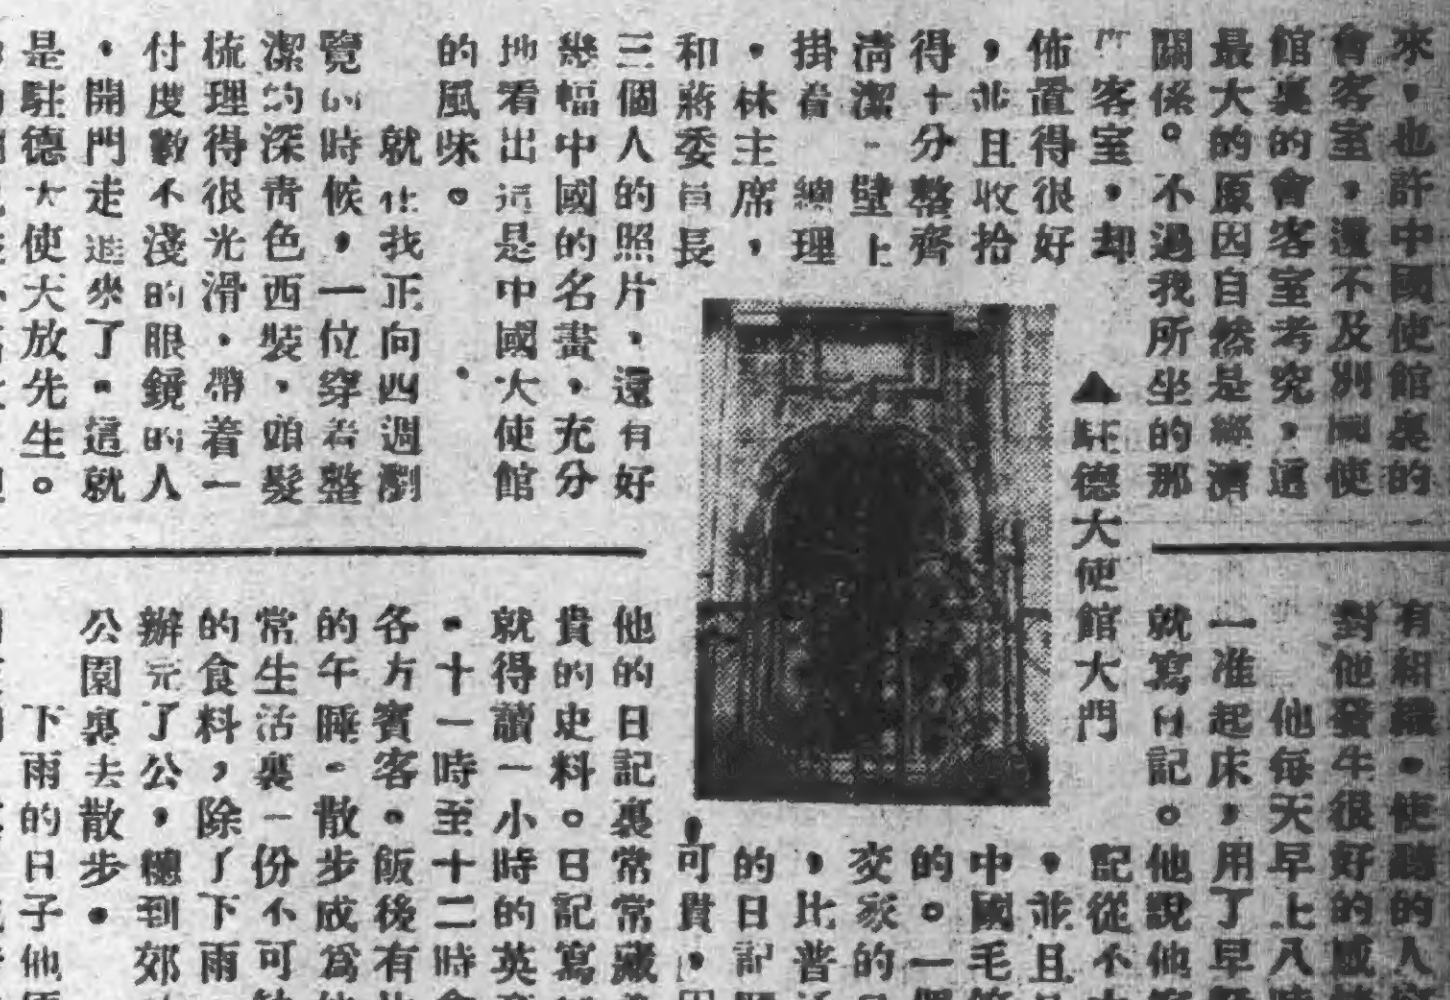 來，也許中國使館裏的
會客室，還不及別國使
館裏的會客室考究，這
最大的原因自然是經濟
關係。不過我所坐的那
客室，却
佈置得很好
，並且收拾
得十分整齊
清潔。壁上
掛着 總理
，林主席，
和蔣委員長
三個人的照片、還有好
幾幅中國的名畫，充分
地看出這是中國大使館
的風味。
就在我正向四週瀏
覽的時候，一位穿着整
潔的深青色西裝，頭髮
梳理得很光滑，帶着一
付度數不淺的眼鏡的人
，開門走進來了。這就
是駐德大使大放先生。
▲駐德大使館大門
有組織。使聽的人
對他發生很好的感
他每天早上八
一准起床，用了早
就寫日記。他說他
記從不
，並且
中國毛
的。一
交家的
，比普
的日記
可貴，
他的日記裏常常藏
貴的史料。日記寫
就得讀一小時的英
。十一時至十二時
各方賓客。飯後有
的午睡。散步成爲
常生活裏一份不可
的食料，除了下雨
辦完了公，總到郊
公園裏去散步。
下雨的日子他